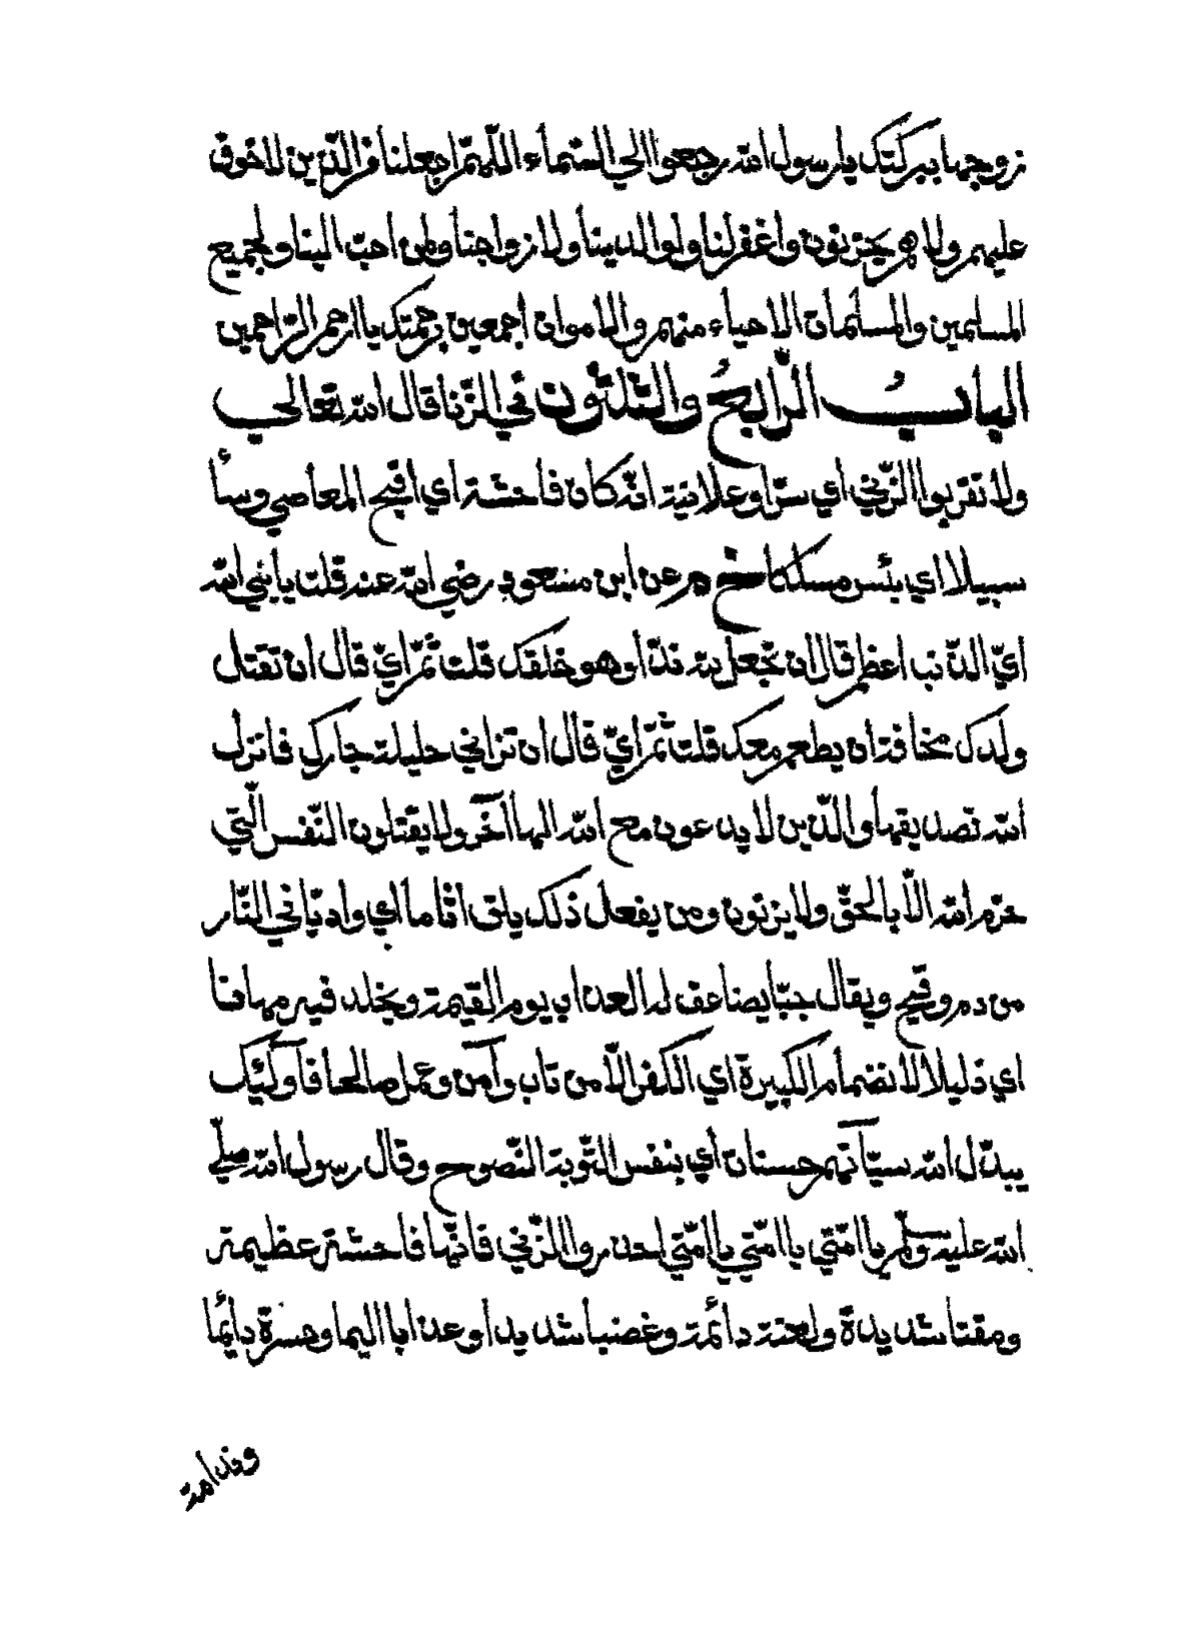 زوجها ببركتك يا رسول الله رجعوا الى السّماء اللّهمّ اجعلنا من الّذين لا خوف
عليهم ولا هم يحزنون واغفر لنا ولوالدينا ولازواجنا ولمن احبّ الينا ولجميع
المسلمين والمسلمات الاحياء منهم والاموات اجمعين برحمتك يا ارحم الرّاحمين
البابُ الرّابعُ والثلثون في الزّنا قال الله تعالى
ولا تقربوا الزّنى اي سرّا وعلانية انّه كان فاحشة اي اقبح المعاصي وساء
سبيلا اي بئس مسلكا خ م عن ابن مسعود رضي الله عنه قلت يا نبي الله
ايّ الذّنب اعظم قال ان تجعل لله ندّا وهو خلقك قلت ثمّ ايّ قال ان تقتل
ولدك مخافة ان يطعم معك قلت ثمّ ايّ قال ان تزاني حليلة جارك فانزل
الله تصديقها والّذين لا يدعون مع الله الها آخر ولا يقتلون النّفس الّتي
حرّم الله الّا بالحقّ ولا يزنون ومن يفعل ذلك يلق اثاما اي واديا في النّار
من دم وقيح ويقال جبّا يضاعف له العذاب يوم القيمة ويخلد فيه مهانا
اي ذليلا لانضمام الكبيرة اي الكفر الّا من تاب وآمن وعمل صالحا فآولئك
يبدّل الله سيّآتهم حسنات اي بنفس التّوبة النّصوح وقال رسول الله صلّى
الله عليه وسلّم يا امّتي يا امّتي يا امّتي احذروا الزّنى فانّها فاحشة عظيمة
ومقتا شديدة ولعنة دائمة وغضبا شديدا وعذابا اليما وحسرة دايما
وندامة